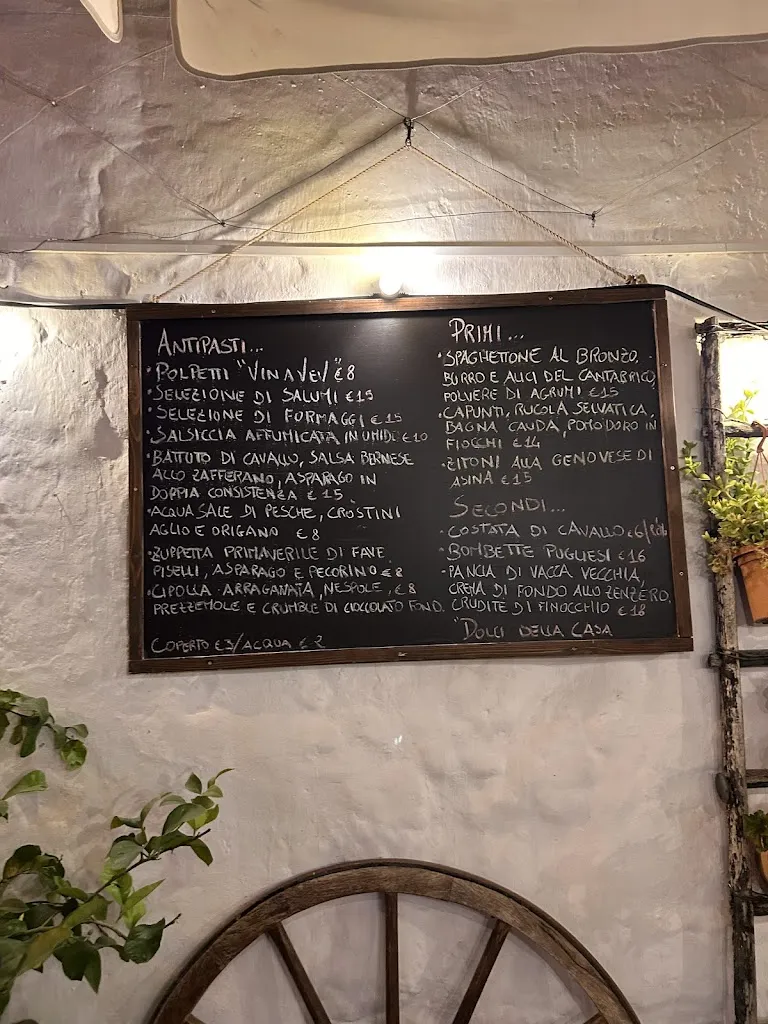 ANTIPASTI...
• POLPETTI "VINAVEV" € 8
• SELEZIONE DI SALUMI € 15
• SELEZIONE DI FORMAGGI € 15
• SALSICCIA AFFUMICATA IN UMIDO € 10
• BATTUTO DI CAVALLO, SALSA BERNESE
ALLO ZAFFERANO, ASPARAGO IN
DOPPIA CONSISTENZA € 15
• ACQUA SALE DI PESCHE, CROSTINI
AGLIO E ORIGANO € 8
• ZUPPETTA PRIMAVERILE DI FAVE
PISELLI, ASPARAGO E PECORINO € 8
• CIPOLLA ARRAGANATA, NESPOLE, € 8
PREZZEMOLE E CRUMBLE DI CIOCCOLATO FOND.
COPERTO €3/ACQUA € 2
PRIMI...
• SPAGHETTONE AL BRONZO,
BURRO E ALICI DEL CANTABRICO,
POLVERE DI AGRUMI € 15
• CAPUNTI, RUCOLA SELVATICA,
BAGNA CAUDA, POMODORO IN
FIOCCHI € 14
• ZITONI ALLA GENOVESE DI
ASINA € 15
SECONDI...
• COSTATA DI CAVALLO € 6/
• BOMBETTE PUGLIESI € 16
• PANCIA DI VACCA VECCHIA,
CREMA DI FONDO ALLO ZENZERO,
CRUDITE DI FINOCCHIO € 18
"DOLCI DELLA CASA